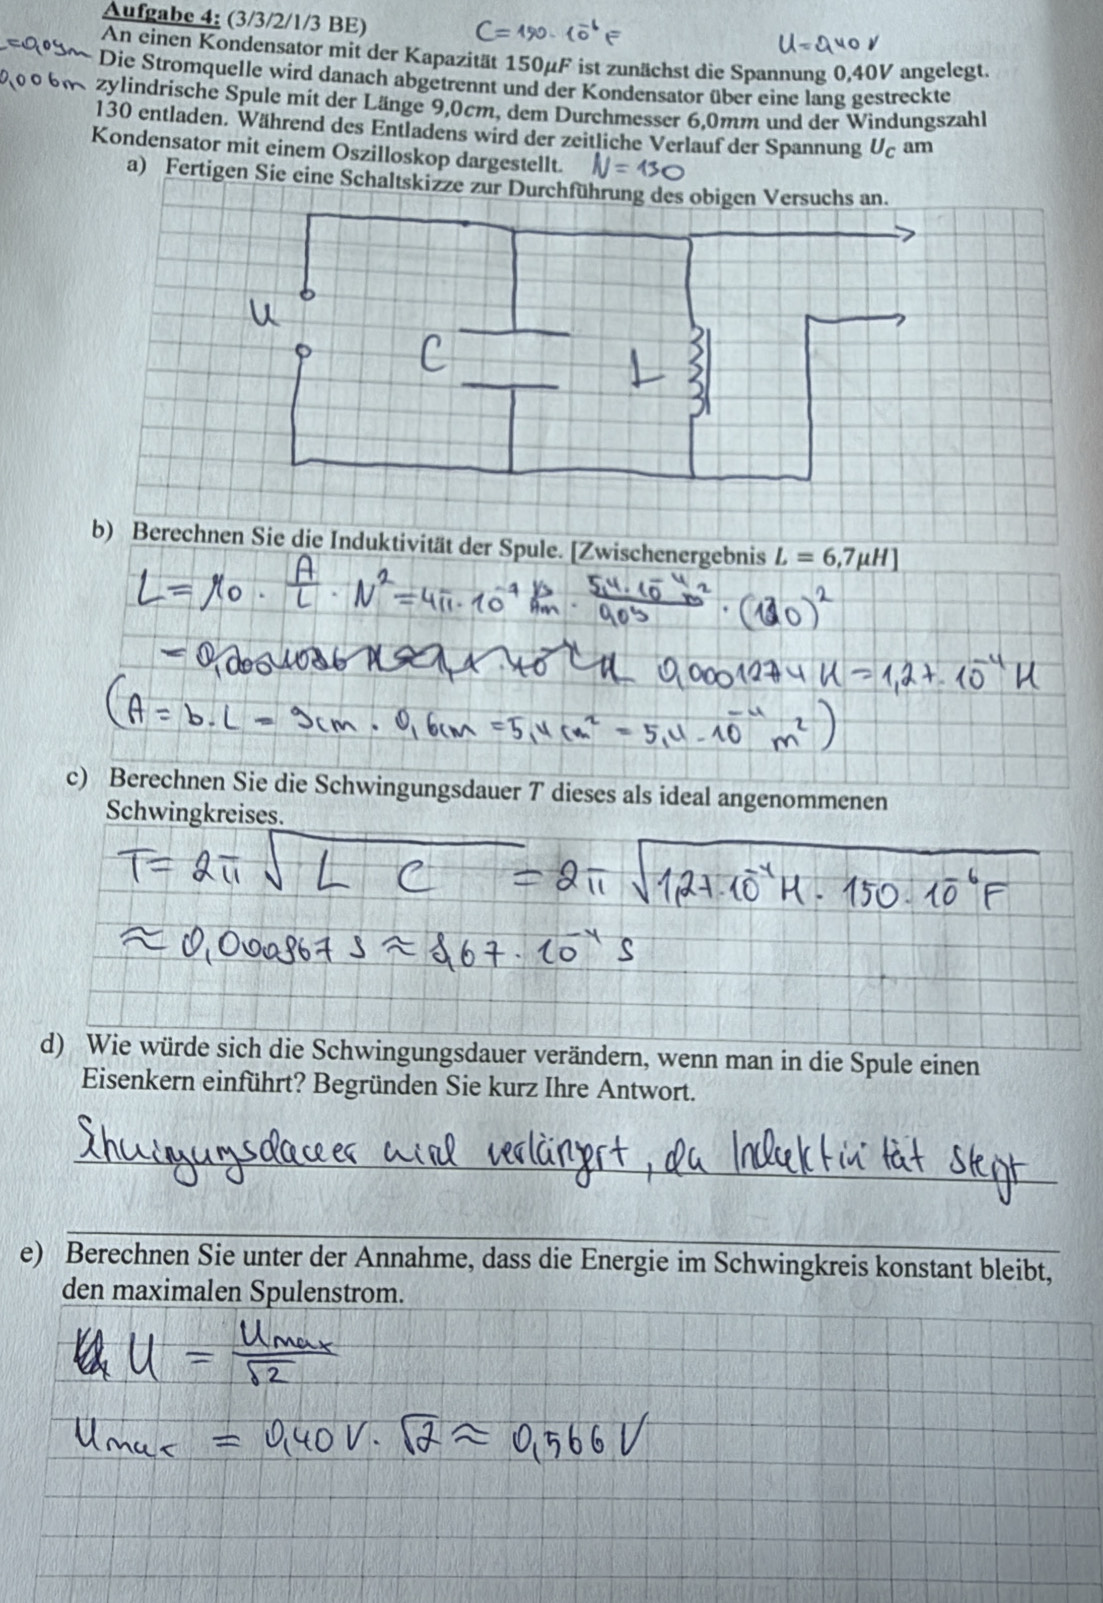 Aufgabe 4: (3/3/2/1/3 BE)
C = 150 · 10⁻⁶ F
U = 0,40 V
An einen Kondensator mit der Kapazität 150μF ist zunächst die Spannung 0,40V angelegt.
= 0,09m
Die Stromquelle wird danach abgetrennt und der Kondensator über eine lang gestreckte
0,006m
zylindrische Spule mit der Länge 9,0cm, dem Durchmesser 6,0mm und der Windungszahl
130 entladen. Während des Entladens wird der zeitliche Verlauf der Spannung U_C am
Kondensator mit einem Oszilloskop dargestellt.
N = 130
a) Fertigen Sie eine Schaltskizze zur Durchführung des obigen Versuchs an.
U
C
L
b) Berechnen Sie die Induktivität der Spule. [Zwischenergebnis L = 6,7μH]
L = μ0 · A/L · N² = 4π · 10⁻⁷ Vs/Am · 5,4 · 10⁻⁴ m²/0,09 · (130)²
= 0,0001274 H = 1,27 · 10⁻⁴ H
(A = b · L = 9cm · 0,6cm = 5,4 cm² = 5,4 · 10⁻⁴ m²)
c) Berechnen Sie die Schwingungsdauer T dieses als ideal angenommenen
Schwingkreises.
T = 2π √L C = 2π √1,27 · 10⁻⁴ H · 150 · 10⁻⁶ F
≈ 0,000867 s ≈ 8,67 · 10⁻⁴ s
d) Wie würde sich die Schwingungsdauer verändern, wenn man in die Spule einen
Eisenkern einführt? Begründen Sie kurz Ihre Antwort.
Schwingungsdauer wird verlängert, da Induktivität steigt
e) Berechnen Sie unter der Annahme, dass die Energie im Schwingkreis konstant bleibt,
den maximalen Spulenstrom.
U = Umax/√2
Umax = 0,40 V · √2 ≈ 0,566 V